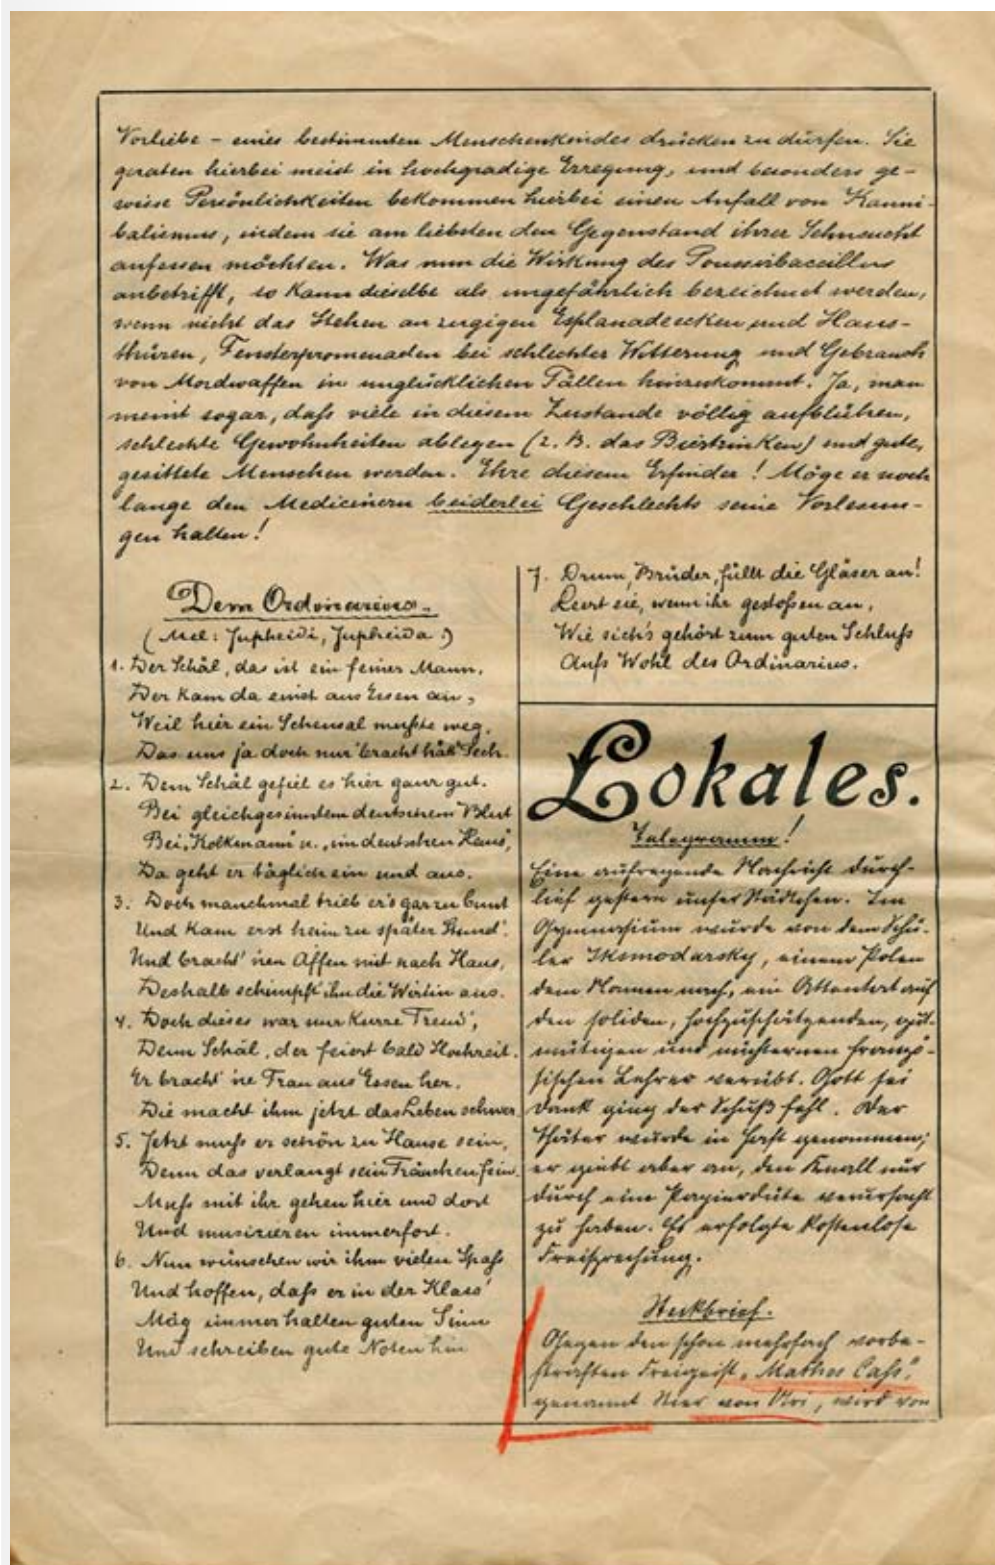 Vorliebe – eines bestimmten Menschenkindes drücken zu dürfen. Sie
geraten hierbei meist in hochgradige Erregung, und besonders ge-
wisse Persönlichkeiten bekommen hierbei einen Anfall von Kanni-
balismus, indem sie am liebsten den Gegenstand ihrer Sehnsucht
anfessen möchten. Was nun die Wirkung des Poussirbacillus
anbetrifft, so kann dieselbe als ungefährlich bezeichnet werden,
wenn nicht das Stehen an zugigen Esplanadeecken und Haus-
thüren, Fensterpromenaden bei schlechter Witterung und Gebrauch
von Mordwaffen in unglücklichen Fällen hinzukommt. Ja, man
meint sogar, daß viele in diesem Zustande völlig aufblühen,
schlechte Gewohnheiten ablegen (z. B. das Biertrinken) und gute,
gesittete Menschen werden. Ehre diesem Erfinder! Möge er noch
lange den Medicinern beiderlei Geschlechts seine Vorlesun-
gen halten!
Dem Ordinarius.
(Mel: Jupheidi, Jupheida :)
1. Der Schäl, das ist ein feiner Mann,
Der kam da einst aus Essen an,
Weil hier ein Scheusal mußte weg,
Das uns ja doch nur bracht hätt' Pech.
2. Dem Schäl gefiel es hier ganz gut.
Bei gleichgesinntem deutschem Blut
Bei „Kolkmann" u. „im deutschen Haus",
Da geht er täglich ein und aus.
3. Doch manchmal trieb er's gar zu bunt
Und kam erst heim zu später Stund'.
Und bracht' nen Affen mit nach Haus,
Deshalb schimpft ihn die Wirtin aus.
4. Doch dieses war nur kurze Freud',
Denn Schäl, der feiert bald Hochzeit.
Er bracht' ne Frau aus Essen her.
Die macht ihm jetzt das Leben schwer
5. Jetzt muß er schön zu Hause sein,
Denn das verlangt sein Frauchen fein.
Muß mit ihr gehen hier und dort
Und musizieren immerfort.
6. Nun wünschen wir ihm vielen Spaß
Und hoffen, daß er in der Klass'
Mög immer halten guten Sinn
Und schreiben gute Noten hin
7. Drum, Brüder, füllt die Gläser an!
Leert sie, wenn ihr gestoßen an,
Wie sich's gehört zum guten Schluß
Aufs Wohl des Ordinarius.
Lokales.
Telegramm!
Eine aufregende Nachricht durch-
lief gestern unser Städtchen. Im
Gymnasium wurde von dem Schü-
ler Skomodarsky, einem Polen
dem Namen nach, ein Attentat auf
den soliden, hochzuschätzenden, gut-
mütigen und nüchternen franzö-
sischen Lehrer verübt. Gott sei
Dank ging der Schuß fehl. Der
Thäter wurde in Haft genommen;
er giebt aber an, den Knall nur
durch eine Papierdüte verursacht
zu haben. Es erfolgte kostenlose
Freisprechung.
Steckbrief.
Gegen den schon mehrfach vorbe-
straften Freigeist „Mathes Caß",
genannt von Uri, wird von